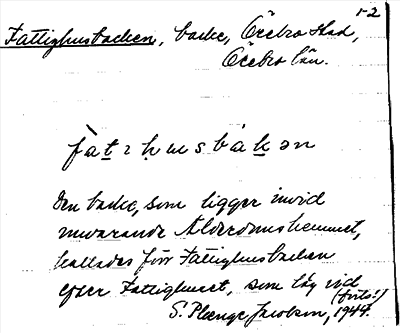 1-2
Fattighusbacken, backe, Örebro stad,
Örebro län.
fàt̲ɪḥusbák̲ən
Den backe, som ligger invid
nuvarande Ålderdomshemmet,
kallades förr Fattighusbacken
efter Fattighuset, som låg vid
(forts!)
S. Plænge Jacobson, 1944.